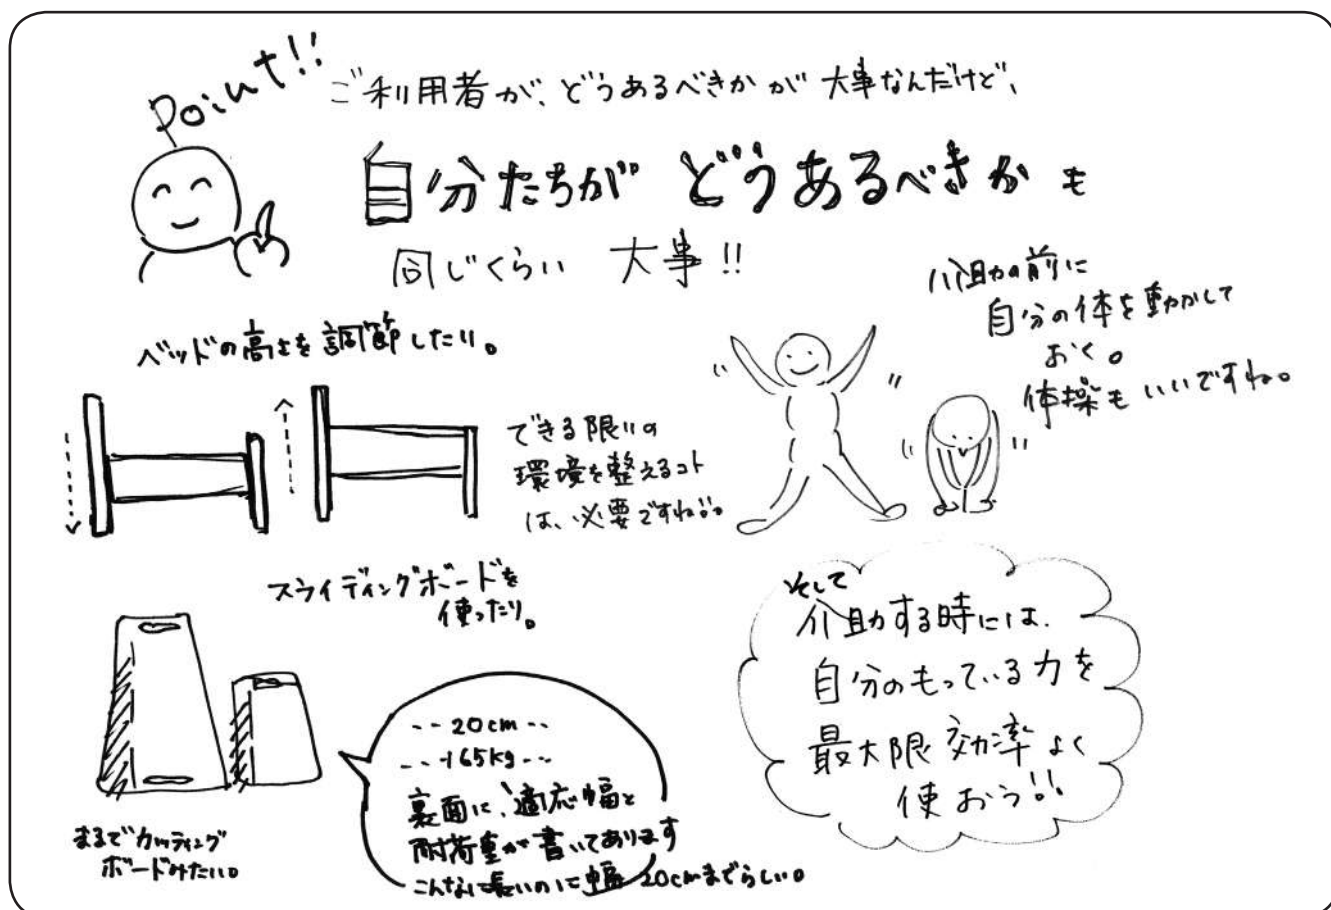 Point!!
ご利用者が、どうあるべきかが 大事なんだけど、
自分たちが どうあるべきか も
同じくらい 大事!!
ベッドの高さを調節したり。
できる限りの
環境を整えるコト
は、必要ですね。
介助の前に
自分の体を動かして
おく。
体操もいいですね。
スライディングボードを
使ったり。
まるでカッティング
ボードみたい。
--20cm--
---165kg---
裏面に、適応幅と
耐荷重が書いてあります
こんなに長いのに幅20cmまでらしい。
そして
介助する時には、
自分のもっている力を
最大限 効率よく
使おう!!